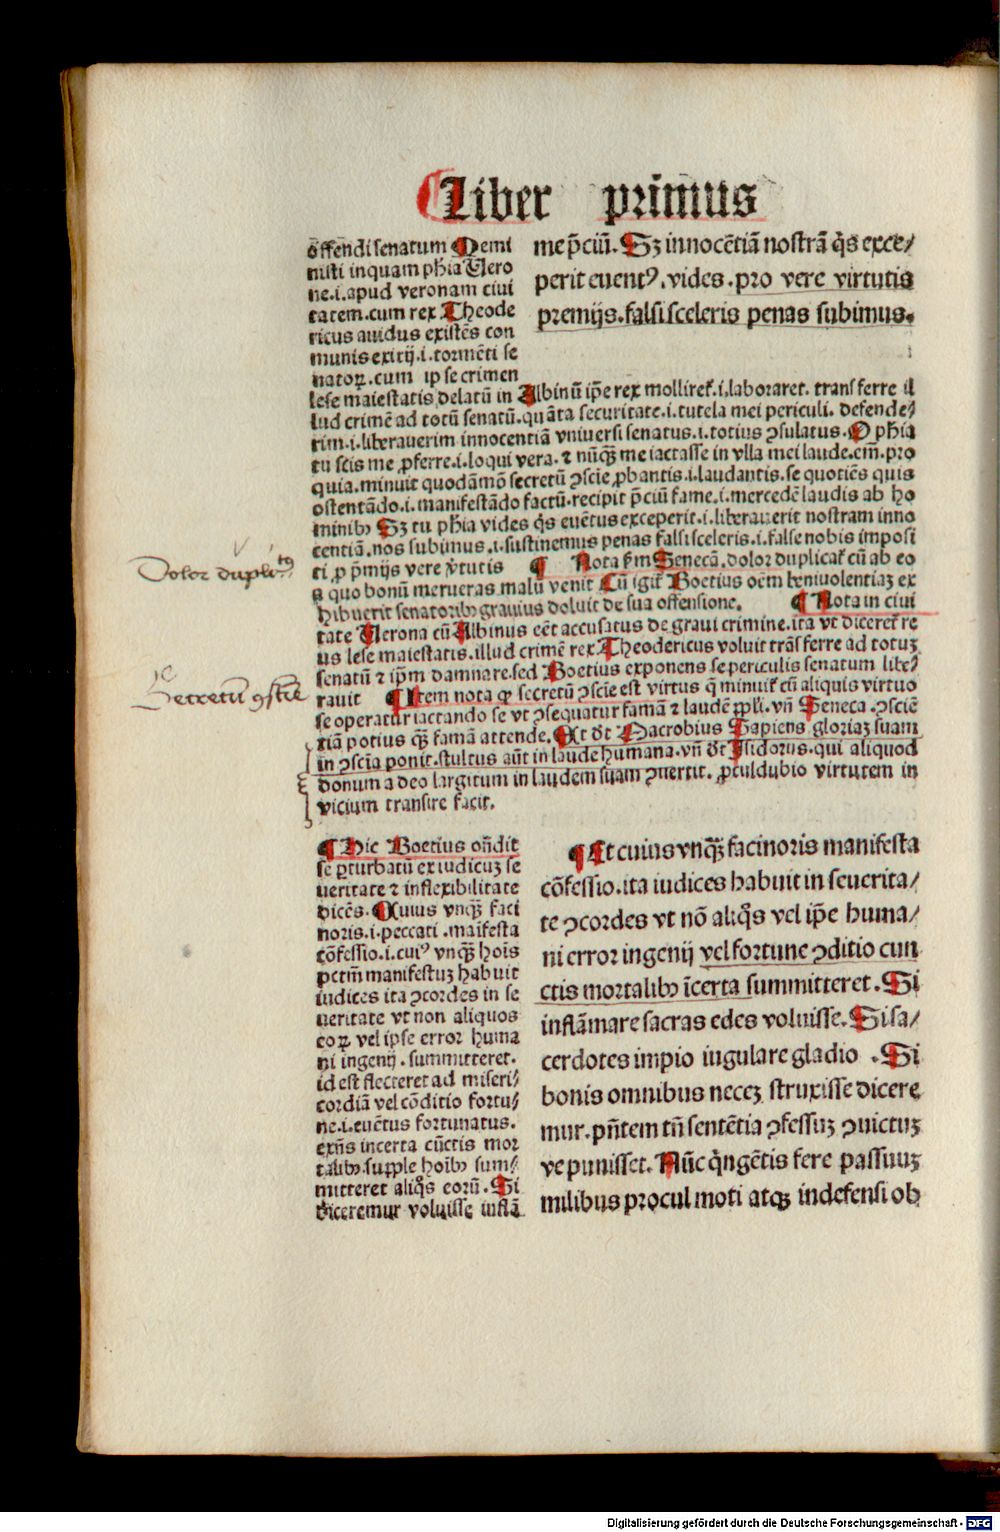 Liber primus
offendi senatum Memi
nisti inquam phīa Vero
ne.i.apud veronam civi
tatem.cum rex Theode
ricus avidus existēs con
munis exitij.i.tormēti se
natoꝝ.cum ipse crimen
lese maiestatis delatū in Albinū ip̄e rex molliret᷑.i.laboraret. transferre il
lud crimē ad totū senatū.quāta securitate.i.tutela mei periculi. defende⸗
rim.i.liberaverim innocentiā vniuersi senatus.i.totius ꝯsulatus.O phīa
tu scis me ꝓferre.i.loqui vera.⁊ nūqꝫ me iactasse in vlla mei laude.em̄.pro
quia.minuit quodāmō secretū ꝯscīe ꝓbantis.i.laudantis.se quotiēs quis
ostentādo.i.manifestādo factū.recipit p̄ciū fame.i.mercedē laudis ab ho
minibꝰ Sꝫ tu phīa vides qͥs euētus exceperit.i.liberauerit nostram inno
centiā.nos subimus.i.sustinemus penas falsi sceleris.i.false nobis imposi
ti ꝓ p̄mijs vere v̓tutis ¶ Nota ꝑm Senecā.dolor duplicat᷑ cū ab eo
a quo bonū merueras malū venit Cū igit᷑ Boetius oēm beniuolentiaꝫ ex
hibuerit senatoribꝰ grauius doluit de sua offensione. ¶ Nota in ciui
tate Verona cū Albinus eēt accusatus de graui crimine.ita vt diceret᷑ re
us lese maiestatis.illud crimē rex Theodericus voluit trāsferre ad totuꝫ
senatū ⁊ ip̄m damnare.sed Boetius exponens se periculis senatum libe⸗
rauit ¶ Item nota ꝙ secretū ꝯscīe est virtus q̄ minuit᷑ cū aliquis virtuo
se operatur iactando se vt ꝯsequatur famā ⁊ laudē ꝓpli.vn̄ Seneca.ꝯsciē
tiā potius qꝫ famā attende.Et dt̄ Macrobius Sapiens gloriaꝫ suam
in ꝯscīa ponit.stultus aūt in laude humana.vn̄ dt̄ Isidorus.qui aliquod
donum a deo largitum in laudem suam ꝯuertit. ꝓculdubio virtutem in
vicium transire facit.
¶ Hic Boetius on̄dit
se ꝑturbatū ex iudicuꝫ se
ueritate ⁊ inflexibilitate
dicēs.Cuius vnqꝫ faci
noris.i.peccati.maīfesta
cōfessio.i.cuiꝰ vnqꝫ hoīs
pctm̄ manifestuꝫ habuit
iudices ita ꝯcordes in se
ueritate vt non aliquos
eoꝝ vel ipse error huma
ni ingenij.summitteret.
id est flecteret ad miseri⸗
cordiā vel cōditio fortu⸗
ne.i.euētus fortunatus.
exn̄s incerta cūctis mor
talibꝰ.supple hoībꝰ sum⸗
mitteret aliqͦs eorū.Si
diceremur voluisse inflā
me p̄ciū. Sꝫ innocētiā nostrā qͥs exce/
perit euentꝰ.vides.pro vere virtutis
premijs.falsi sceleris penas subimus.
¶ Et cuius vnqꝫ facinoris manifesta
cōfessio.ita iudices habuit in seuerita/
te ꝯcordes vt nō aliqͦs vel ip̄e huma/
ni error ingenij vel fortune ꝯditio cun
ctis mortalibꝰ īcerta summitteret.Si
inflāmare sacras edes voluisse.Si sa/
cerdotes impio iugulare gladio .Si
bonis omnibus neceꝫ struxisse dicere
mur.pn̄tem tn̄ sentētia ꝯfessuꝫ ꝯuictuꝫ
ve punisset.Nūc qͥngētis fere passuuꝫ
milibus procul moti atqꝫ indefensi ob
Dolor duplicatus
Secretū ꝯscīe
Digitalisierung gefördert durch die Deutsche Forschungsgemeinschaft - DFG